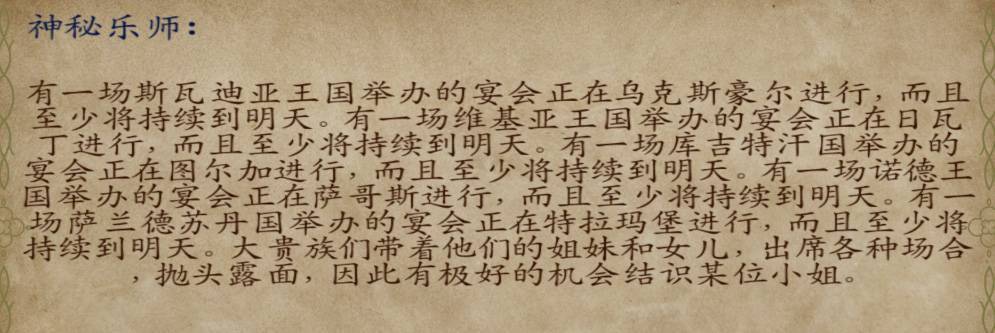 神秘乐师：
有一场斯瓦迪亚王国举办的宴会正在乌克斯豪尔进行，而且
至少将持续到明天。有一场维基亚王国举办的宴会正在日瓦
丁进行，而且至少将持续到明天。有一场库吉特汗国举办的
宴会正在图尔加进行，而且至少将持续到明天。有一场诺德王
国举办的宴会正在萨哥斯进行，而且至少将持续到明天。有一
场萨兰德苏丹国举办的宴会正在特拉玛堡进行，而且至少将
持续到明天。大贵族们带着他们的姐妹和女儿，出席各种场合
，抛头露面，因此有极好的机会结识某位小姐。